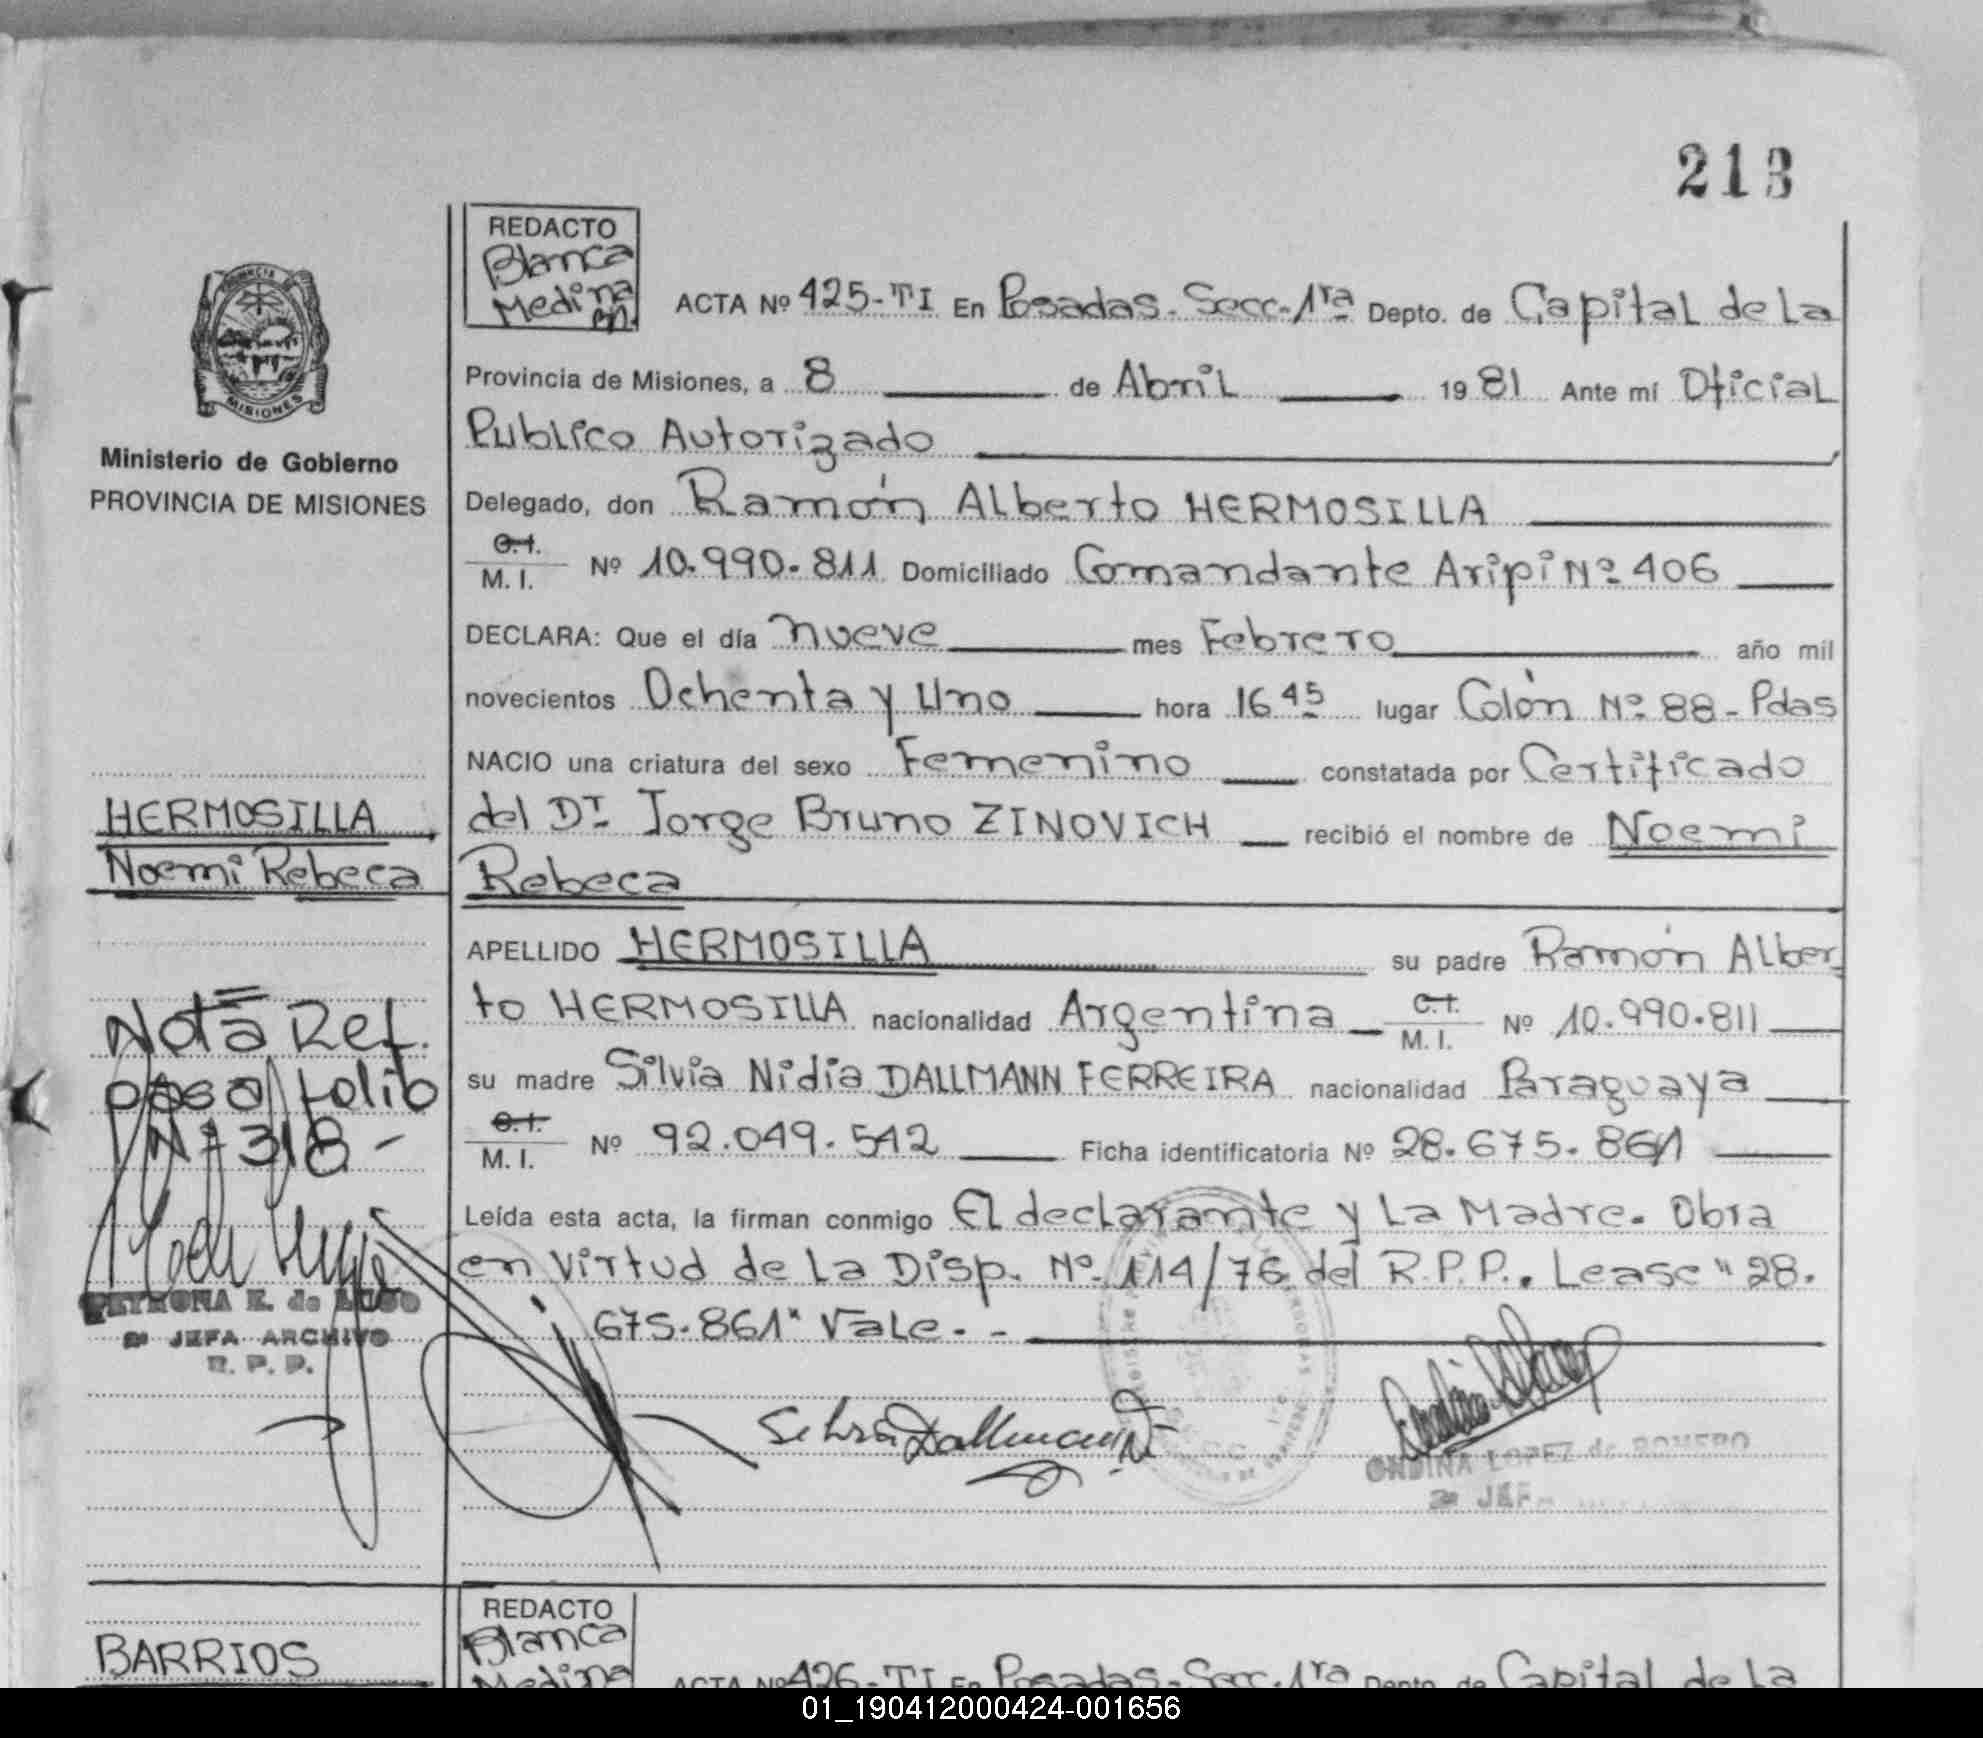 213
REDACTO
Blanca
Medina
MISIONES
Ministerio de Gobierno
PROVINCIA DE MISIONES
ACTA Nº 425-TI En Posadas. Secc. 1ra Depto. de Capital de La
Provincia de Misiones, a 8 de Abril 1981 Ante mí Oficial
Publico Autorizado
Delegado, don Ramón Alberto HERMOSILLA
C.I.
M. I. Nº 10.990.811 Domiciliado Comandante Aripi Nº 406
DECLARA: Que el día nueve mes Febrero año mil
novecientos Ochenta y Uno hora 16 45 lugar Colón Nº 88 - Pdas
NACIO una criatura del sexo Femenino constatada por Certificado
del Dr Jorge Bruno ZINOVICH recibió el nombre de Noemi
Rebeca
HERMOSILLA
Noemi Rebeca
APELLIDO HERMOSILLA su padre Ramón Alber
to HERMOSILLA nacionalidad Argentina C.I.
M. I. Nº 10.990.811
su madre Silvia Nidia DALLMANN FERREIRA nacionalidad Paraguaya
C.I.
M. I. Nº 92.049.542 Ficha identificatoria Nº 28.675.861
Leída esta acta, la firman conmigo El declarante y La Madre. Obra
en virtud de La Disp. Nº 114/76 del R.P.P.. Lease "28.
675.861" Vale. -
Nota Ref.
pasa folio
Nº 318 -
PETRONA E. de LUGO
2ª JEFA ARCHIVO
R. P. P.
Silvia Dallmann
ONDINA LOPEZ de ROMERO
2ª JEFA
BARRIOS
REDACTO
Blanca
Medina
ACTA Nº 426-TI En Posadas-Secc. 1ra Depto. de Capital de La
01_190412000424-001656